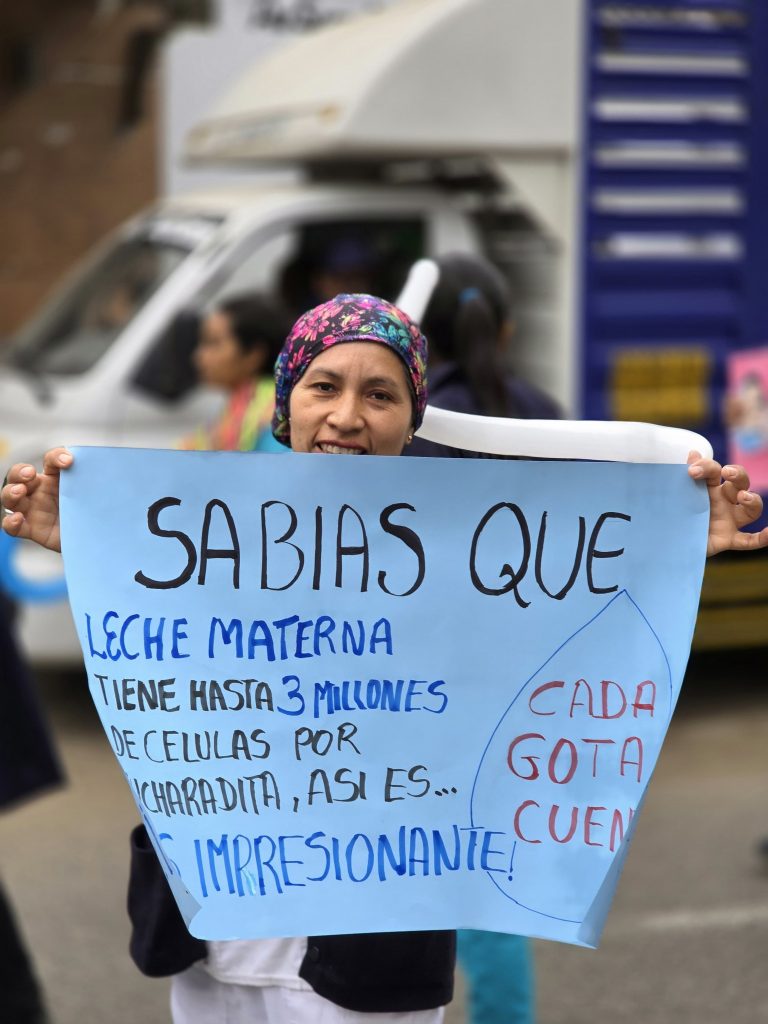 SABIAS QUE
LECHE MATERNA
TIENE HASTA 3 MILLONES
DE CELULAS POR
CHARADITA, ASI ES...
IMPRESIONANTE!
CADA
GOTA
CUEN